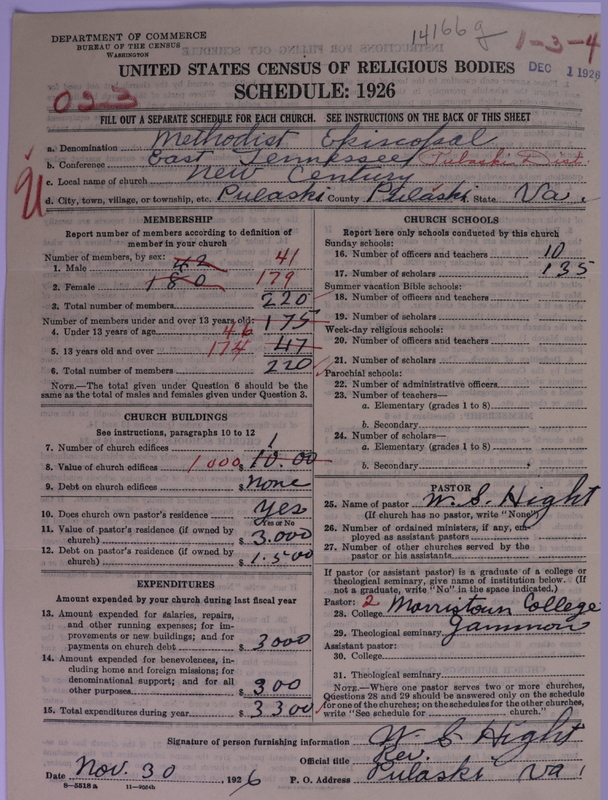 141669
1-3-4
DEPARTMENT OF COMMERCE
BUREAU OF THE CENSUS
WASHINGTON
DEC 1 1926
UNITED STATES CENSUS OF RELIGIOUS BODIES
SCHEDULE: 1926
FILL OUT A SEPARATE SCHEDULE FOR EACH CHURCH. SEE INSTRUCTIONS ON THE BACK OF THIS SHEET
a. Denomination Methodist Episcopal
b. Conference East Tennessee Pulaski Dist.
c. Local name of church New Century
d. City, town, village, or township, etc. Pulaski County Pulaski State Va.
MEMBERSHIP
Report number of members according to definition of
member in your church
Number of members, by sex:
1. Male 41
2. Female 180 179
3. Total number of members 220
Number of members under and over 13 years old: 175
4. Under 13 years of age 46
5. 13 years old and over 174 47
6. Total number of members 220
NOTE.—The total given under Question 6 should be
the same as the total of males and females given under Question 3.
CHURCH BUILDINGS
See instructions, paragraphs 10 to 12
7. Number of church edifices 1
8. Value of church edifices 1000 $ 10.00
9. Debt on church edifices $ None
10. Does church own pastor's residence Yes
Yes or No
11. Value of pastor's residence (if owned by
church) $ 3.000
12. Debt on pastor's residence (if owned by
church) $ 1.500
EXPENDITURES
Amount expended by your church during last fiscal year
13. Amount expended for salaries, repairs,
and other running expenses; for im-
provements or new buildings; and for
payments on church debt $ 3000
14. Amount expended for benevolences, in-
cluding home and foreign missions; for
denominational support; and for all
other purposes $ 300
15. Total expenditures during year $ 3300
CHURCH SCHOOLS
Report here only schools conducted by this church
Sunday schools:
16. Number of officers and teachers 10
17. Number of scholars 135
Summer vacation Bible schools:
18. Number of officers and teachers
19. Number of scholars
Week-day religious schools:
20. Number of officers and teachers
21. Number of scholars
Parochial schools:
22. Number of administrative officers
23. Number of teachers—
a. Elementary (grades 1 to 8)
b. Secondary
24. Number of scholars—
a. Elementary (grades 1 to 8)
b. Secondary
PASTOR
25. Name of pastor W. S. Hight
(If church has no pastor, write "None")
26. Number of ordained ministers, if any, em-
ployed as assistant pastors
27. Number of other churches served by the
pastor or his assistants
If pastor (or assistant pastor) is a graduate of a college or
theological seminary, give name of institution below. (If
not a graduate, write "No" in the space indicated.)
Pastor: 2
28. College Morristown College
29. Theological seminary Gammon
Assistant pastor:
30. College
31. Theological seminary
NOTE.—Where one pastor serves two or more churches,
Questions 28 and 29 should be answered only on the schedule
for one of the churches; on the schedules for the other churches,
write "See schedule for church."
Signature of person furnishing information W. S. Hight
Official title Rev.
Date Nov. 30, 1926 P. O. Address Pulaski Va.
8-5518a